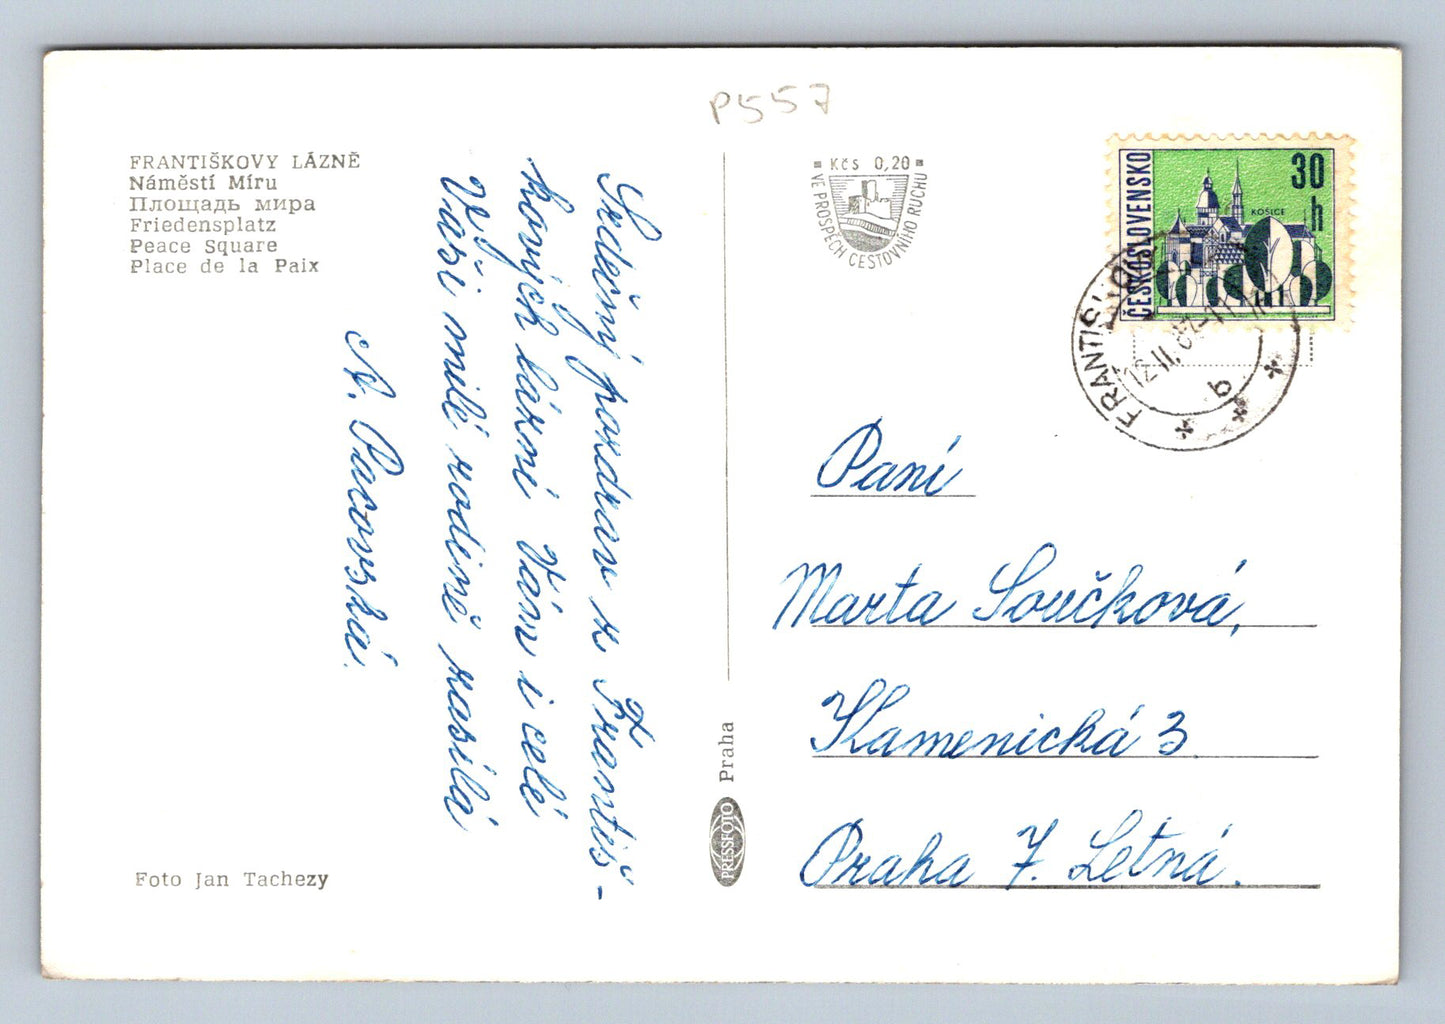 P557
FRANTIŠKOVY LÁZNĚ
Náměstí Míru
Площадь мира
Friedensplatz
Peace Square
Place de la Paix
Kčs 0,20
VE PROSPĚCH CESTOVNÍHO RUCHU
ČESKOSLOVENSKO
30
h
KOŠICE
FRANTIŠKO
12.II.
b
Srdečný pozdrav z Františ-
kových lázní Vám i celé
Vaší milé rodině zasílá
A. Pacovská.
Paní
Marta Součková,
Kamenická 3
Praha 7. Letná.
Praha
PRESSFOTO
Foto Jan Tachezy